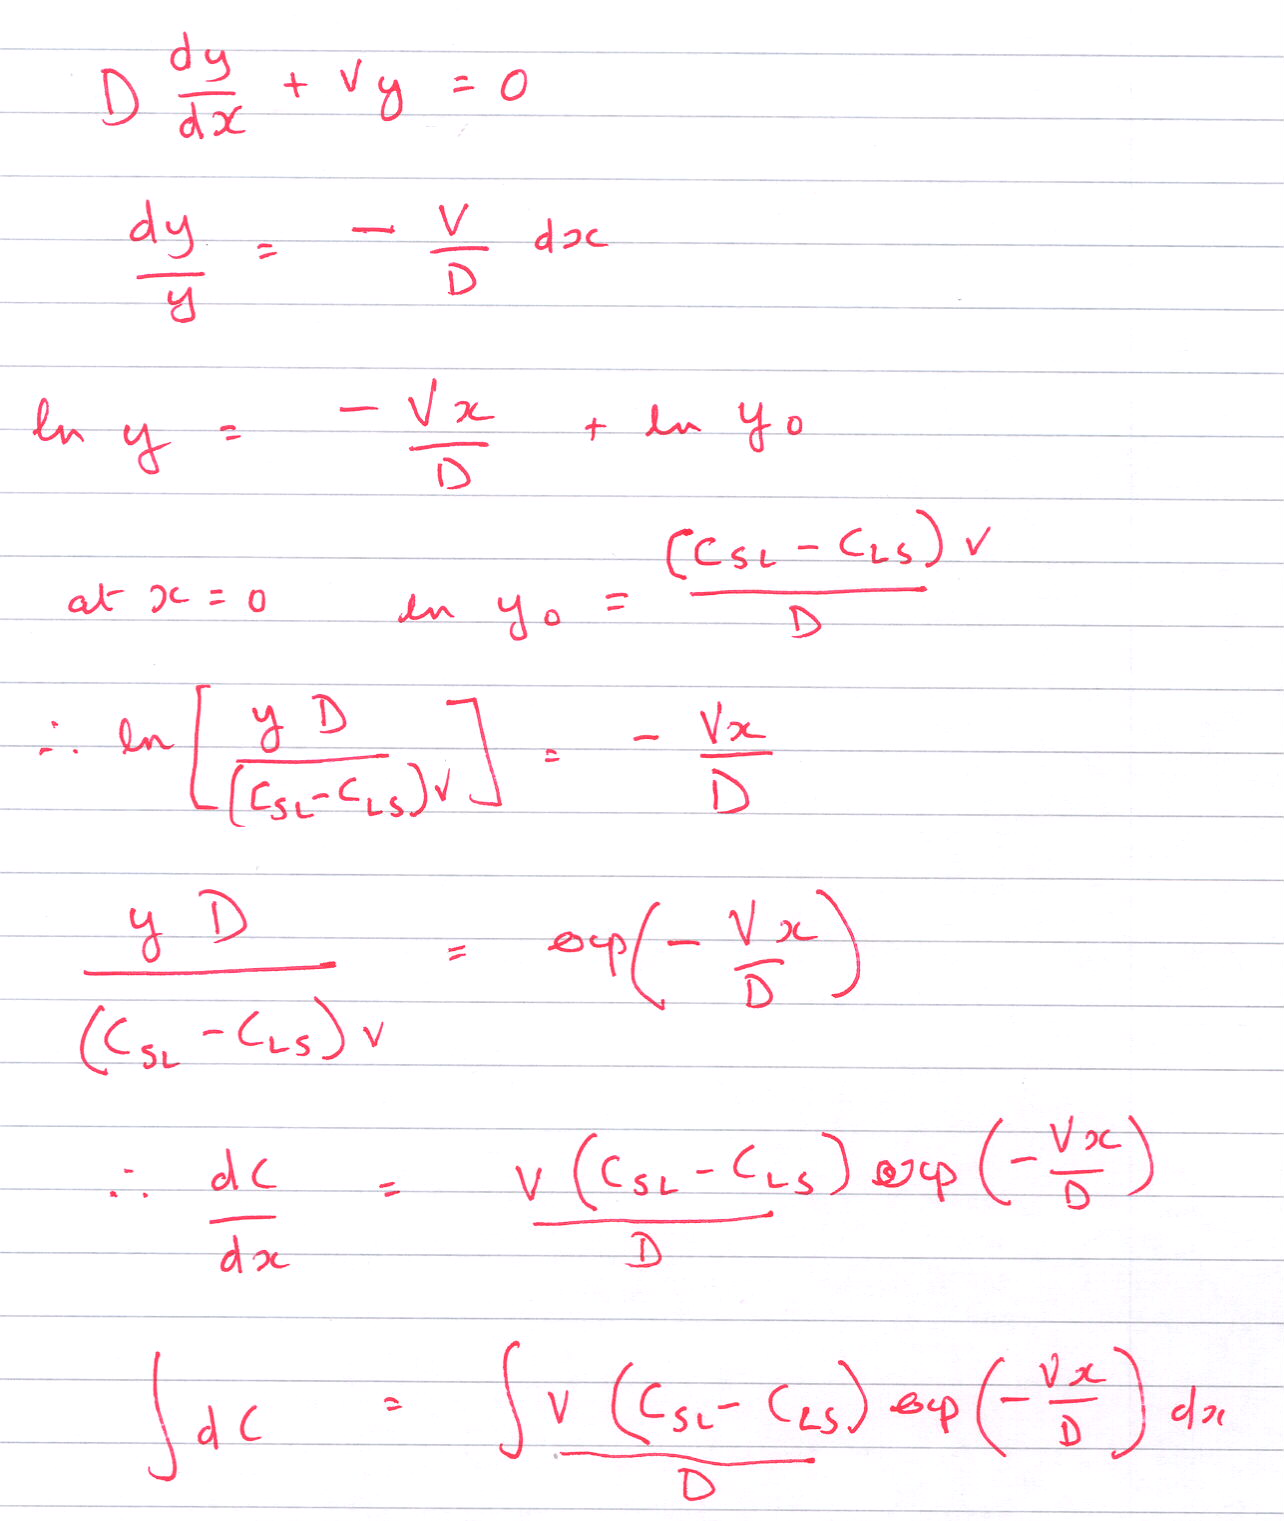 D dy/dx + Vy = 0
dy/y = - V/D dx
ln y = - Vx/D + ln y₀
at x = 0 ln y₀ = (C_SL - C_LS) V / D
∴ ln [ y D / (C_SL - C_LS) V ] = - Vx/D
y D / (C_SL - C_LS) V = exp(- Vx/D)
∴ dC/dx = V (C_SL - C_LS) / D exp(- Vx/D)
∫ dC = ∫ V (C_SL - C_LS) / D exp(- Vx/D) dx